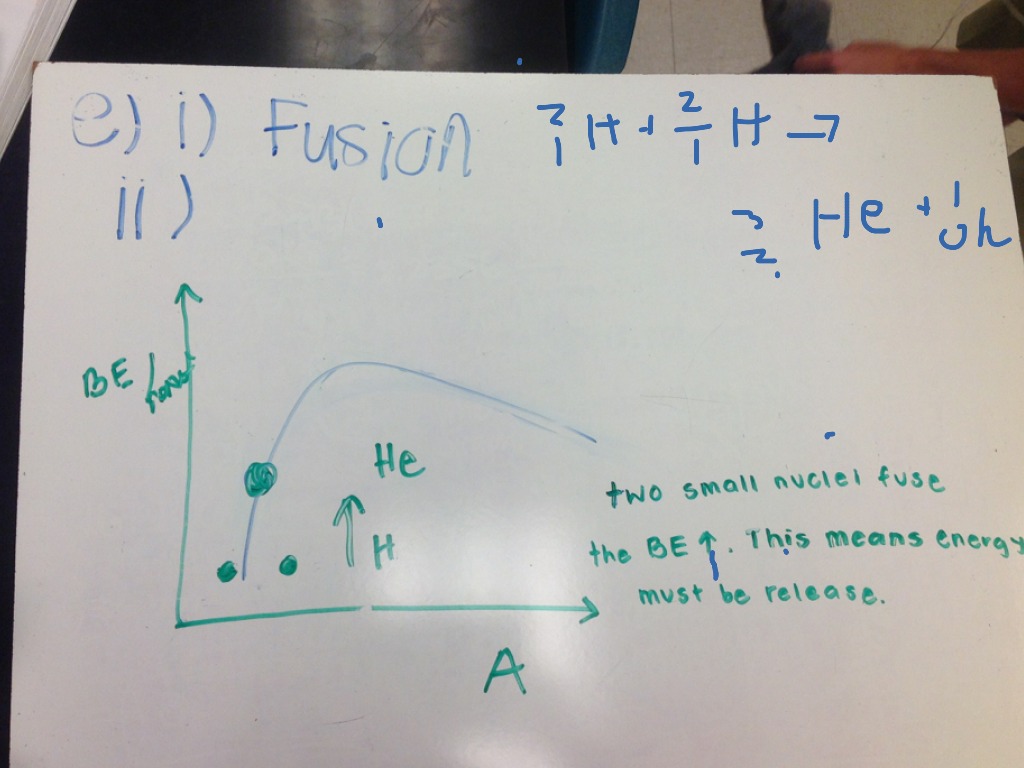 e) i) Fusion ²₁H + ²₁H →
ii)
³₂He + ¹₀n
BE /
He
H
two small nuclei fuse
the BE ↑. This means energy
must be release.
A